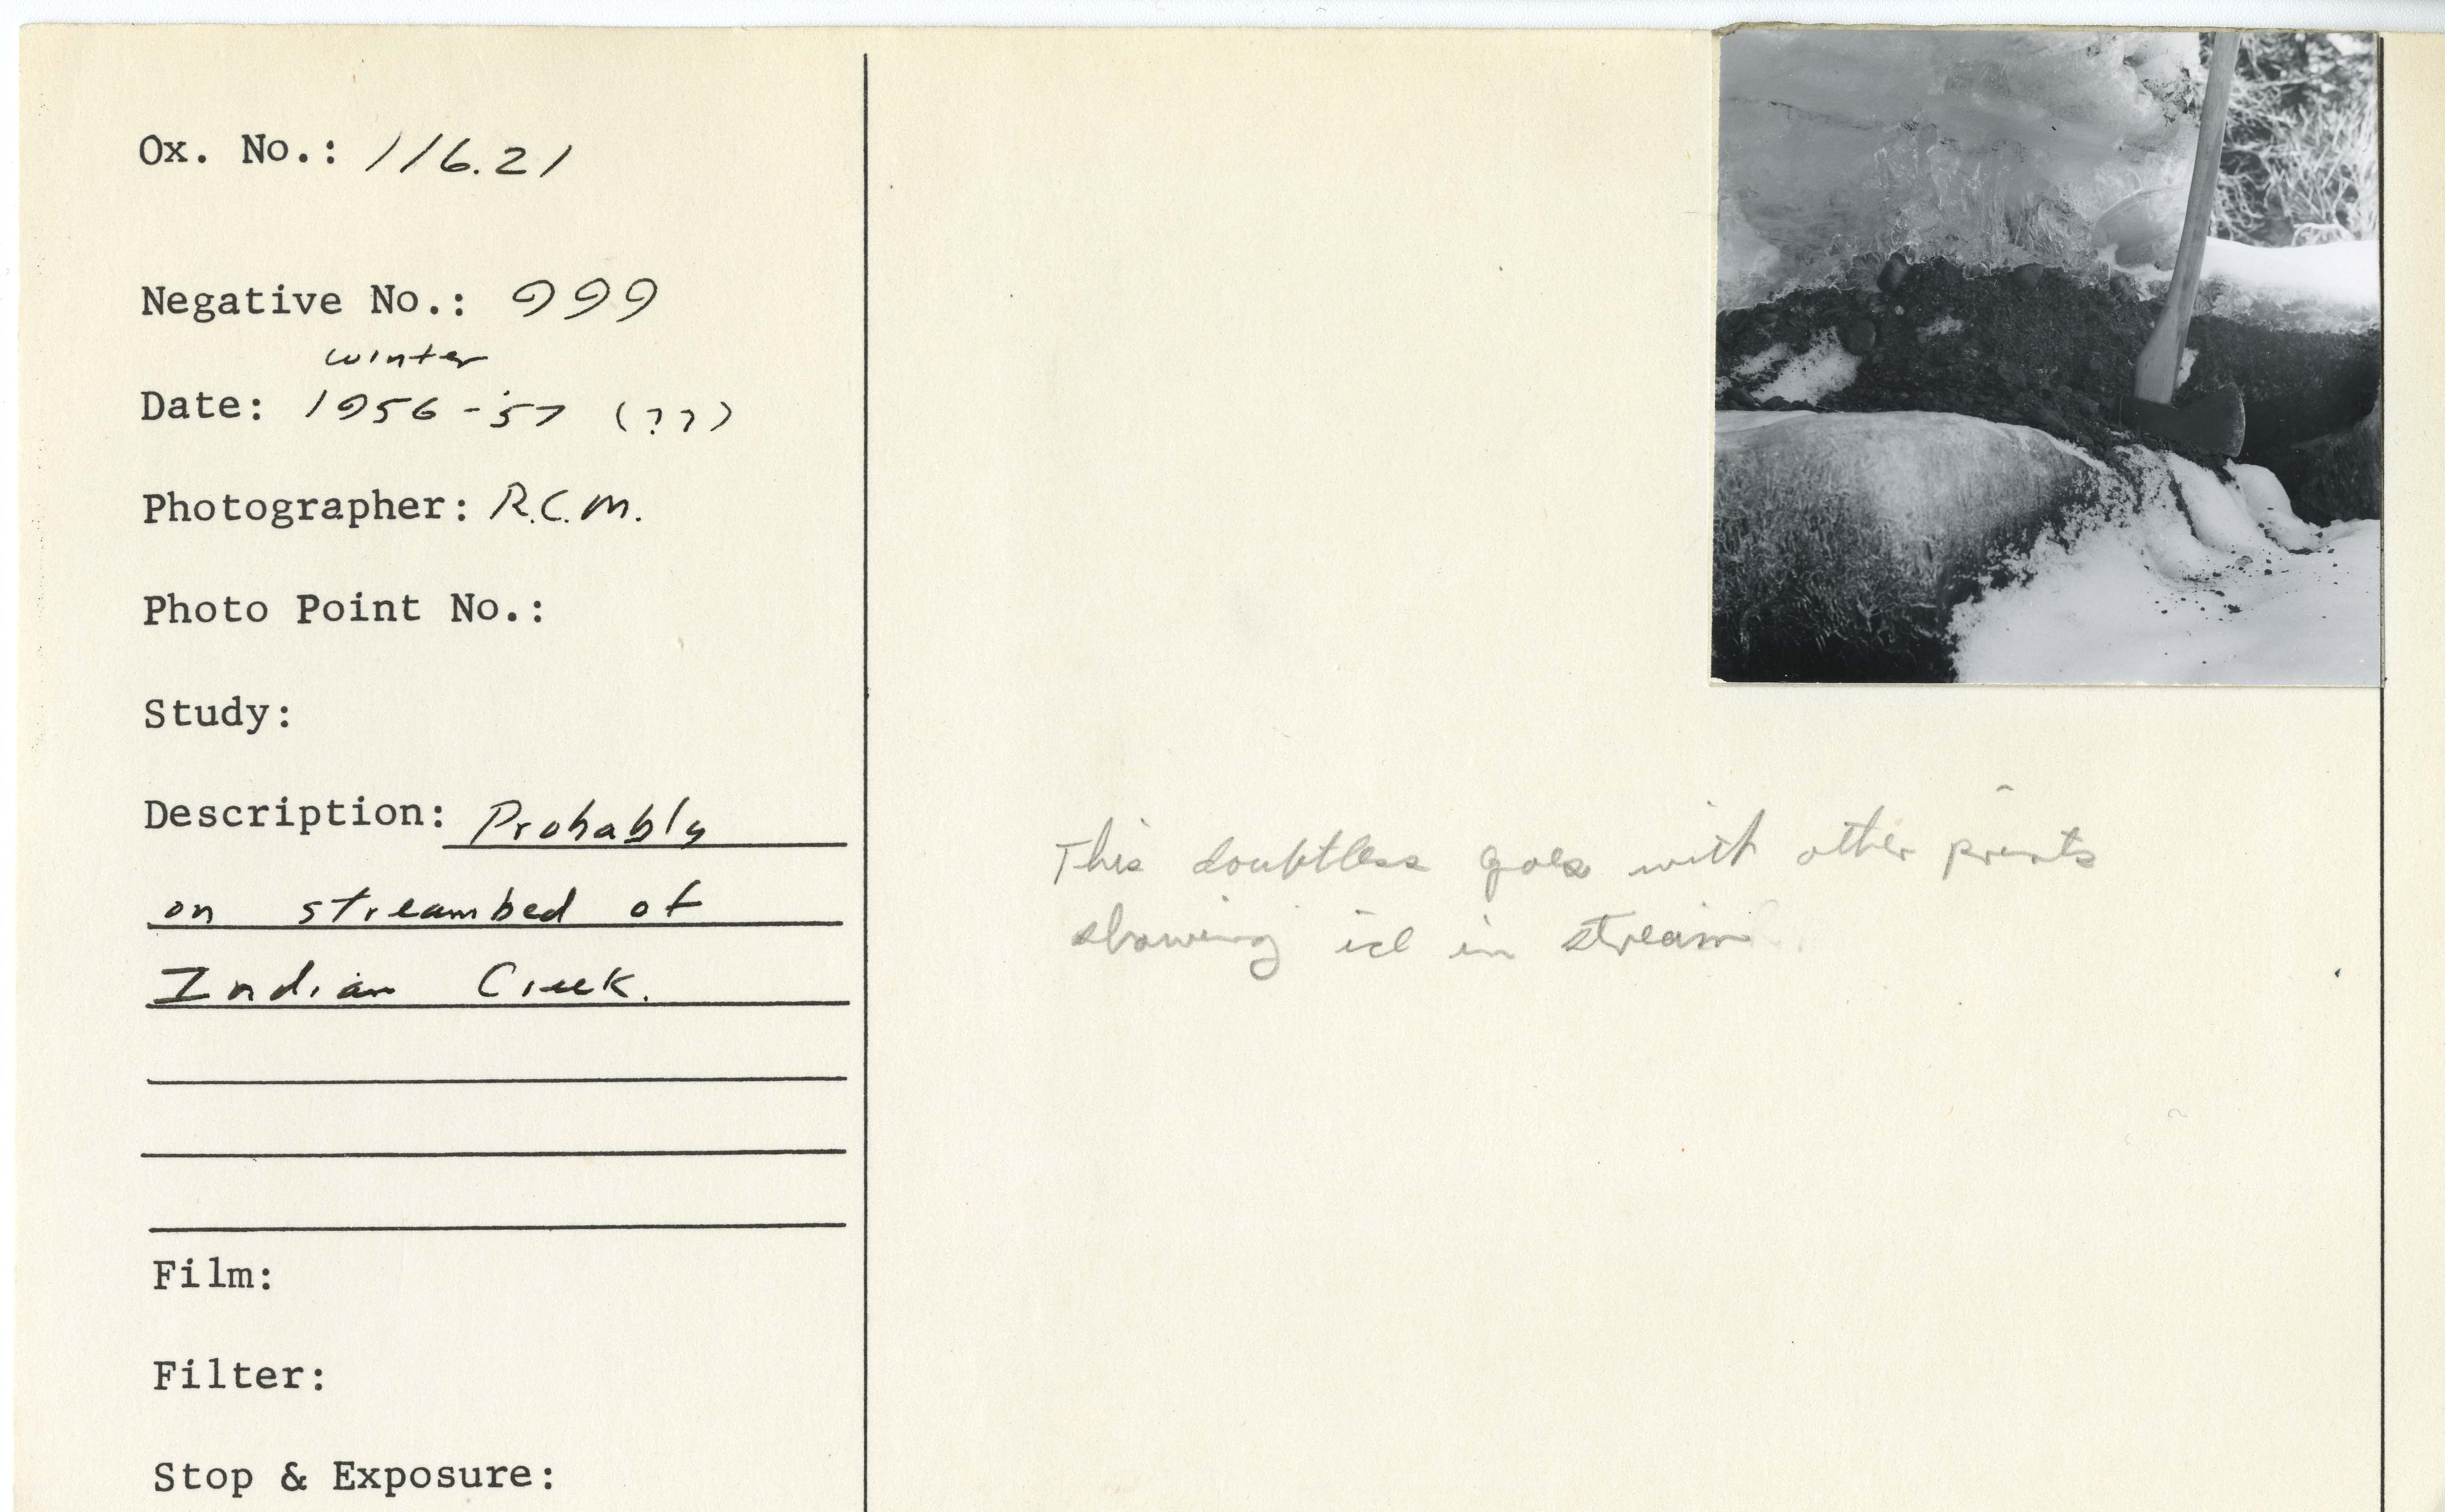 Ox. No.: 116.21
Negative No.: 999
winter
Date: 1956-'57 (??)
Photographer: R.C.M.
Photo Point No.:
Study:
Description: Probably
on streambed of
Indian Creek.
Film:
Filter:
Stop & Exposure:
This doubtless goes with other prints
showing ice in stream